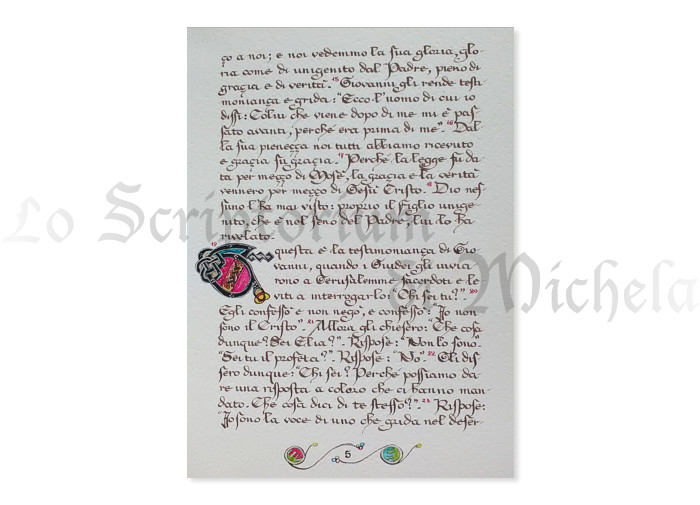 ço a noi; e noi vedemmo la sua gloria, glo-
ria come di unigenito dal Padre, pieno di
graçia e di verità. 15 Giovanni gli rende testi
moniança e grida: "Ecco l'uomo di cui io
dissi: Colui che viene dopo di me mi è pas
sato avanti, perché era prima di me". 16 Dal
la sua pieneçça noi tutti abbiamo ricevuto
e graçia su graçia. 17 Perché la legge fu da
ta per meçço di Mosè, la graçia e la verità
vennero per meçço di Gesù Cristo. 18 Dio nes
suno l'ha mai visto: proprio il Figlio unige
nito, che è nel seno del Padre, lui lo ha
rivelato.
19
questa è la testimoniança di Gio
vanni, quando i Giudei gli invia
rono a Gerusalemme sacerdoti e le
viti a interrogarlo: "Chi sei tu?" 20
Egli confessò e non negò, e confessò: "Io non
sono il Cristo". 21 Allora gli chiesero: "Che cosa
dunque? Sei Elia?". Rispose: "Non lo sono".
"Sei tu il profeta?". Rispose: "No". 22 Gli dis
sero dunque: "Chi sei? Perché possiamo da
re una risposta a coloro che ci hanno man
dato. Che cosa dici di te stesso?". 23 Rispose:
"Io sono la voce di uno che grida nel deser-
5
Lo Scriptorium di Michela